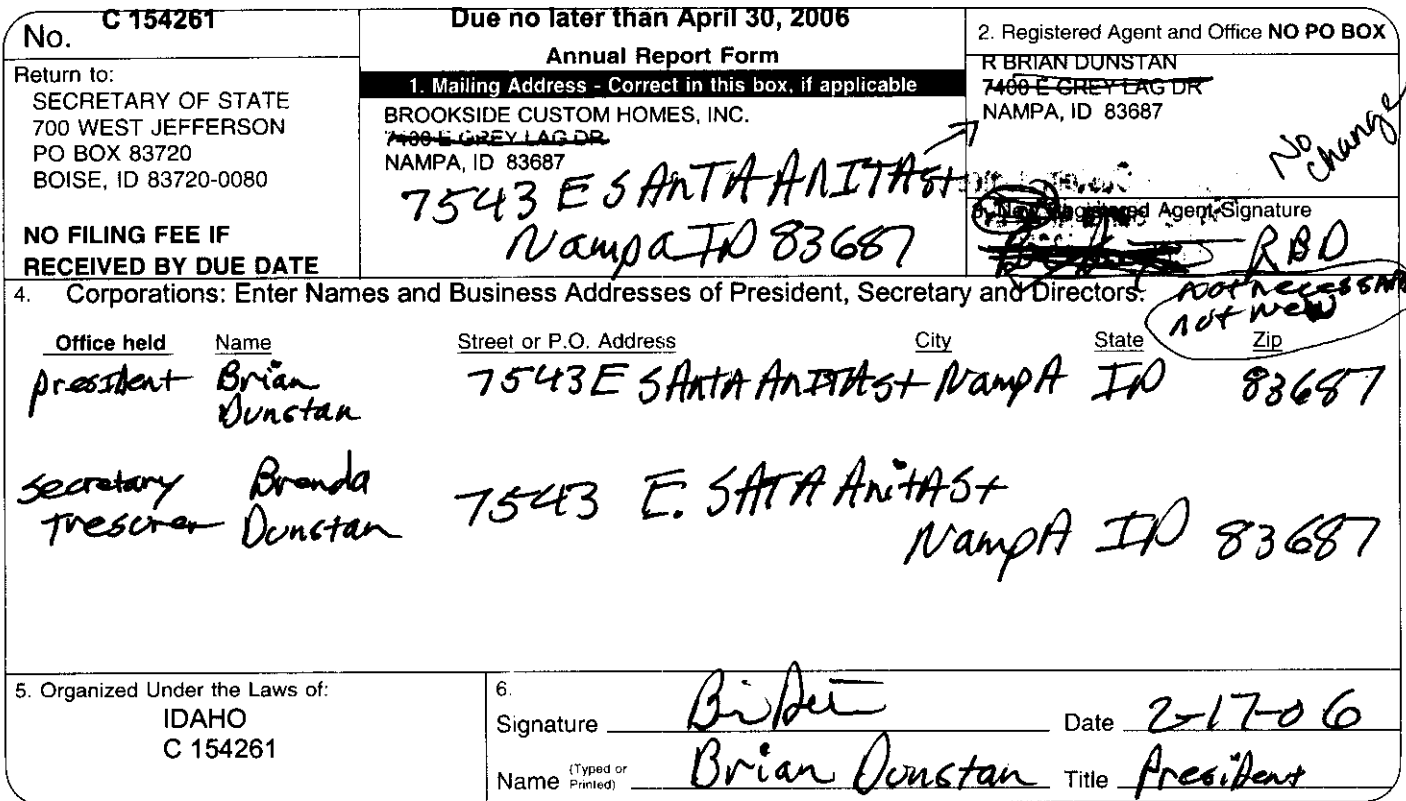 No. C 154261
Return to:
SECRETARY OF STATE
700 WEST JEFFERSON
PO BOX 83720
BOISE, ID 83720-0080
NO FILING FEE IF
RECEIVED BY DUE DATE
Due no later than April 30, 2006
Annual Report Form
1. Mailing Address - Correct in this box, if applicable
BROOKSIDE CUSTOM HOMES, INC.
7400 E GREY LAG DR
NAMPA, ID 83687
7543 E SAnTA ANITA St
Nampa ID 83687
2. Registered Agent and Office NO PO BOX
R BRIAN DUNSTAN
7400 E GREY LAG DR
NAMPA, ID 83687
No change
3. New Registered Agent Signature
RBD
not necessary
not new
4. Corporations: Enter Names and Business Addresses of President, Secretary and Directors.
Office held Name Street or P.O. Address City State Zip
president Brian 7543 E SAntA AnITA St NampA ID 83687
Dunstan
secretary Brenda 7543 E. SATA AnitA St
Tresurer Dunstan NampA ID 83687
5. Organized Under the Laws of:
IDAHO
C 154261
6.
Signature Date 2-17-06
Name (Typed or Printed) Brian Dunstan Title President